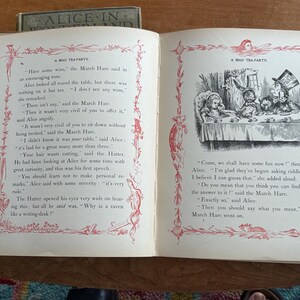 ALICE IN
A MAD TEA-PARTY.
"Have some wine," the March Hare said in
an encouraging tone.
Alice looked all round the table, but there was
nothing on it but tea. "I don't see any wine,"
she remarked.
"There isn't any," said the March Hare.
"Then it wasn't very civil of you to offer it,"
said Alice angrily.
"It wasn't very civil of you to sit down without
being invited," said the March Hare.
"I didn't know it was your table," said Alice;
"it's laid for a great many more than three."
"Your hair wants cutting," said the Hatter.
He had been looking at Alice for some time with
great curiosity, and this was his first speech.
"You should learn not to make personal re-
marks," Alice said with some severity: "it's very
rude."
The Hatter opened his eyes very wide on hear-
ing this; but all he said was, "Why is a raven
like a writing-desk?"
A MAD TEA-PARTY.
"Come, we shall have some fun now!" thought
Alice. "I'm glad they've begun asking riddles.—
I believe I can guess that," she added aloud.
"Do you mean that you think you can find out
the answer to it?" said the March Hare.
"Exactly so," said Alice.
"Then you should say what you mean," the
March Hare went on.